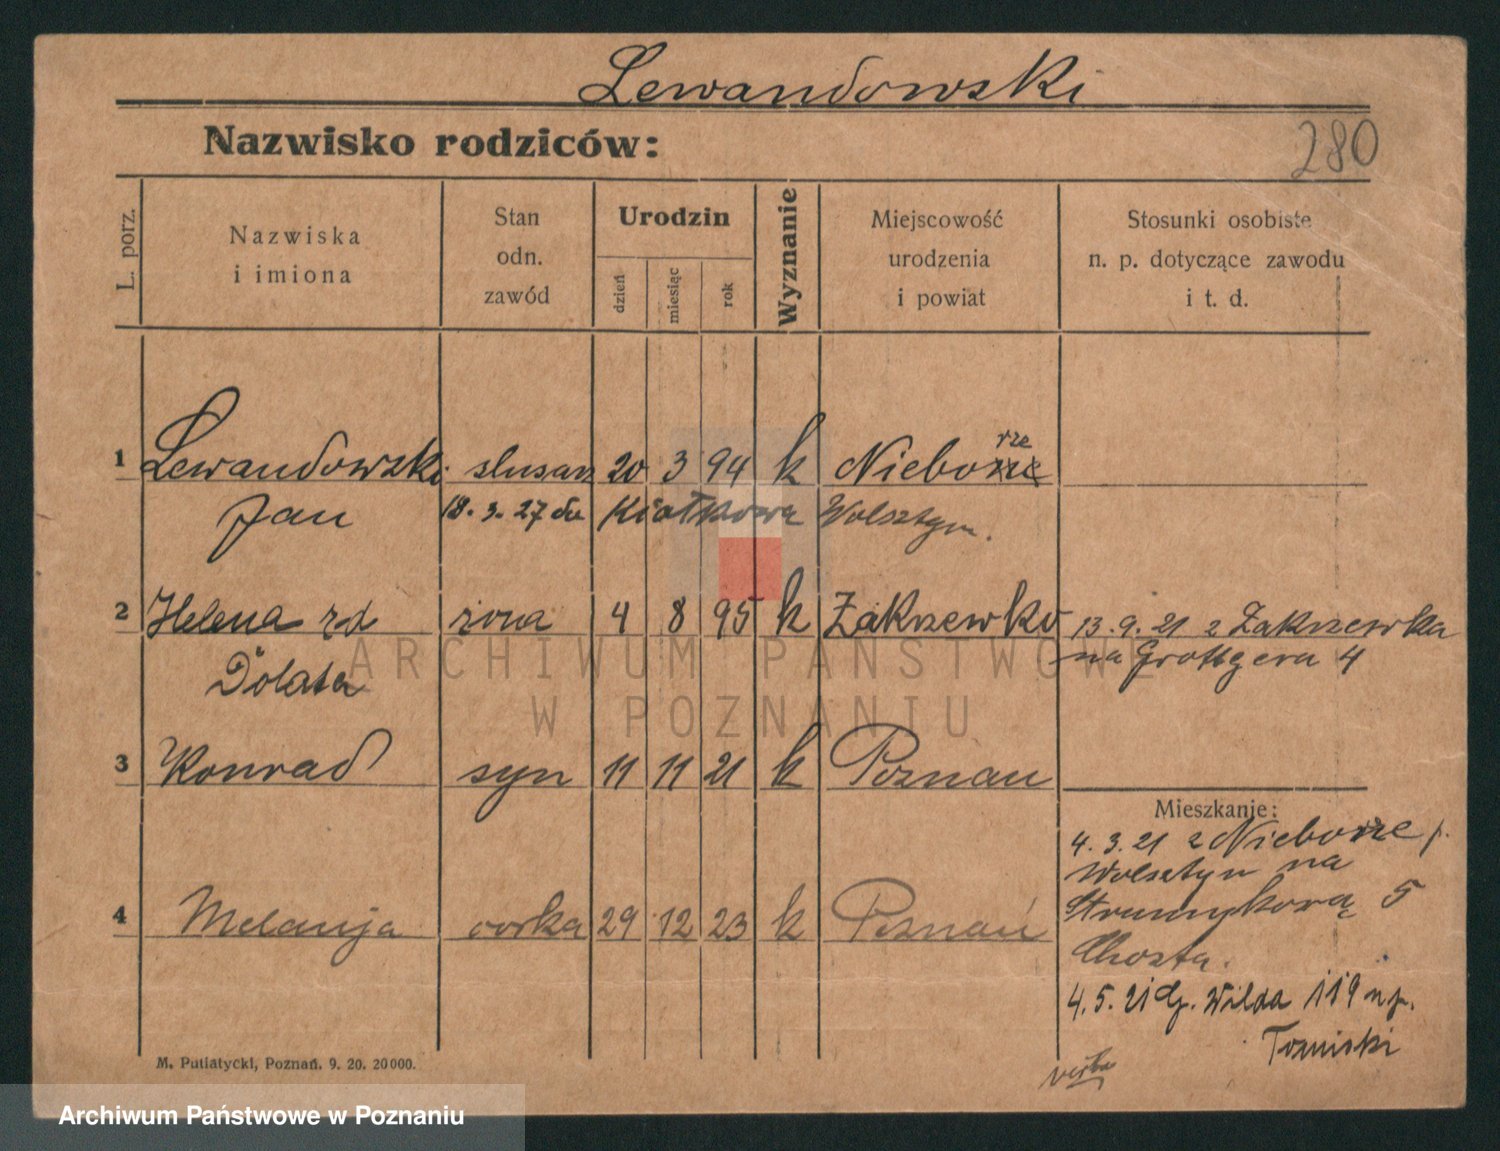 Lewandowski
Nazwisko rodziców:
280
L. porz.
Nazwiska
i imiona
Stan
odn.
zawód
Urodzin
dzień
miesiąc
rok
Wyznanie
Miejscowość
urodzenia
i powiat
Stosunki osobiste
n. p. dotyczące zawodu
i t. d.
1 Lewandowski slusarz 20 3 94 k Nieborze
Jan 18. 3. 27 do Wolsztyn.
2 Helena rd żona 4 8 95 k Zakrzewko 13. 9. 21 z Zakrzewka
Dolata na Grottgera 4
3 Konrad syn 11 11 21 k Poznau
Mieszkanie:
4. 3. 21 z Nieborze p.
Wolsztyn na
Strumykową 5
4 Melanja corka 29 12 23 k Poznań
Chosta.
4. 5. 21 G. Wilda 119 n p.
M. Putiatycki, Poznań. 9. 20. 20000.
ARCHIWUM PAŃSTWOWE
W POZNANIU
Archiwum Państwowe w Poznaniu